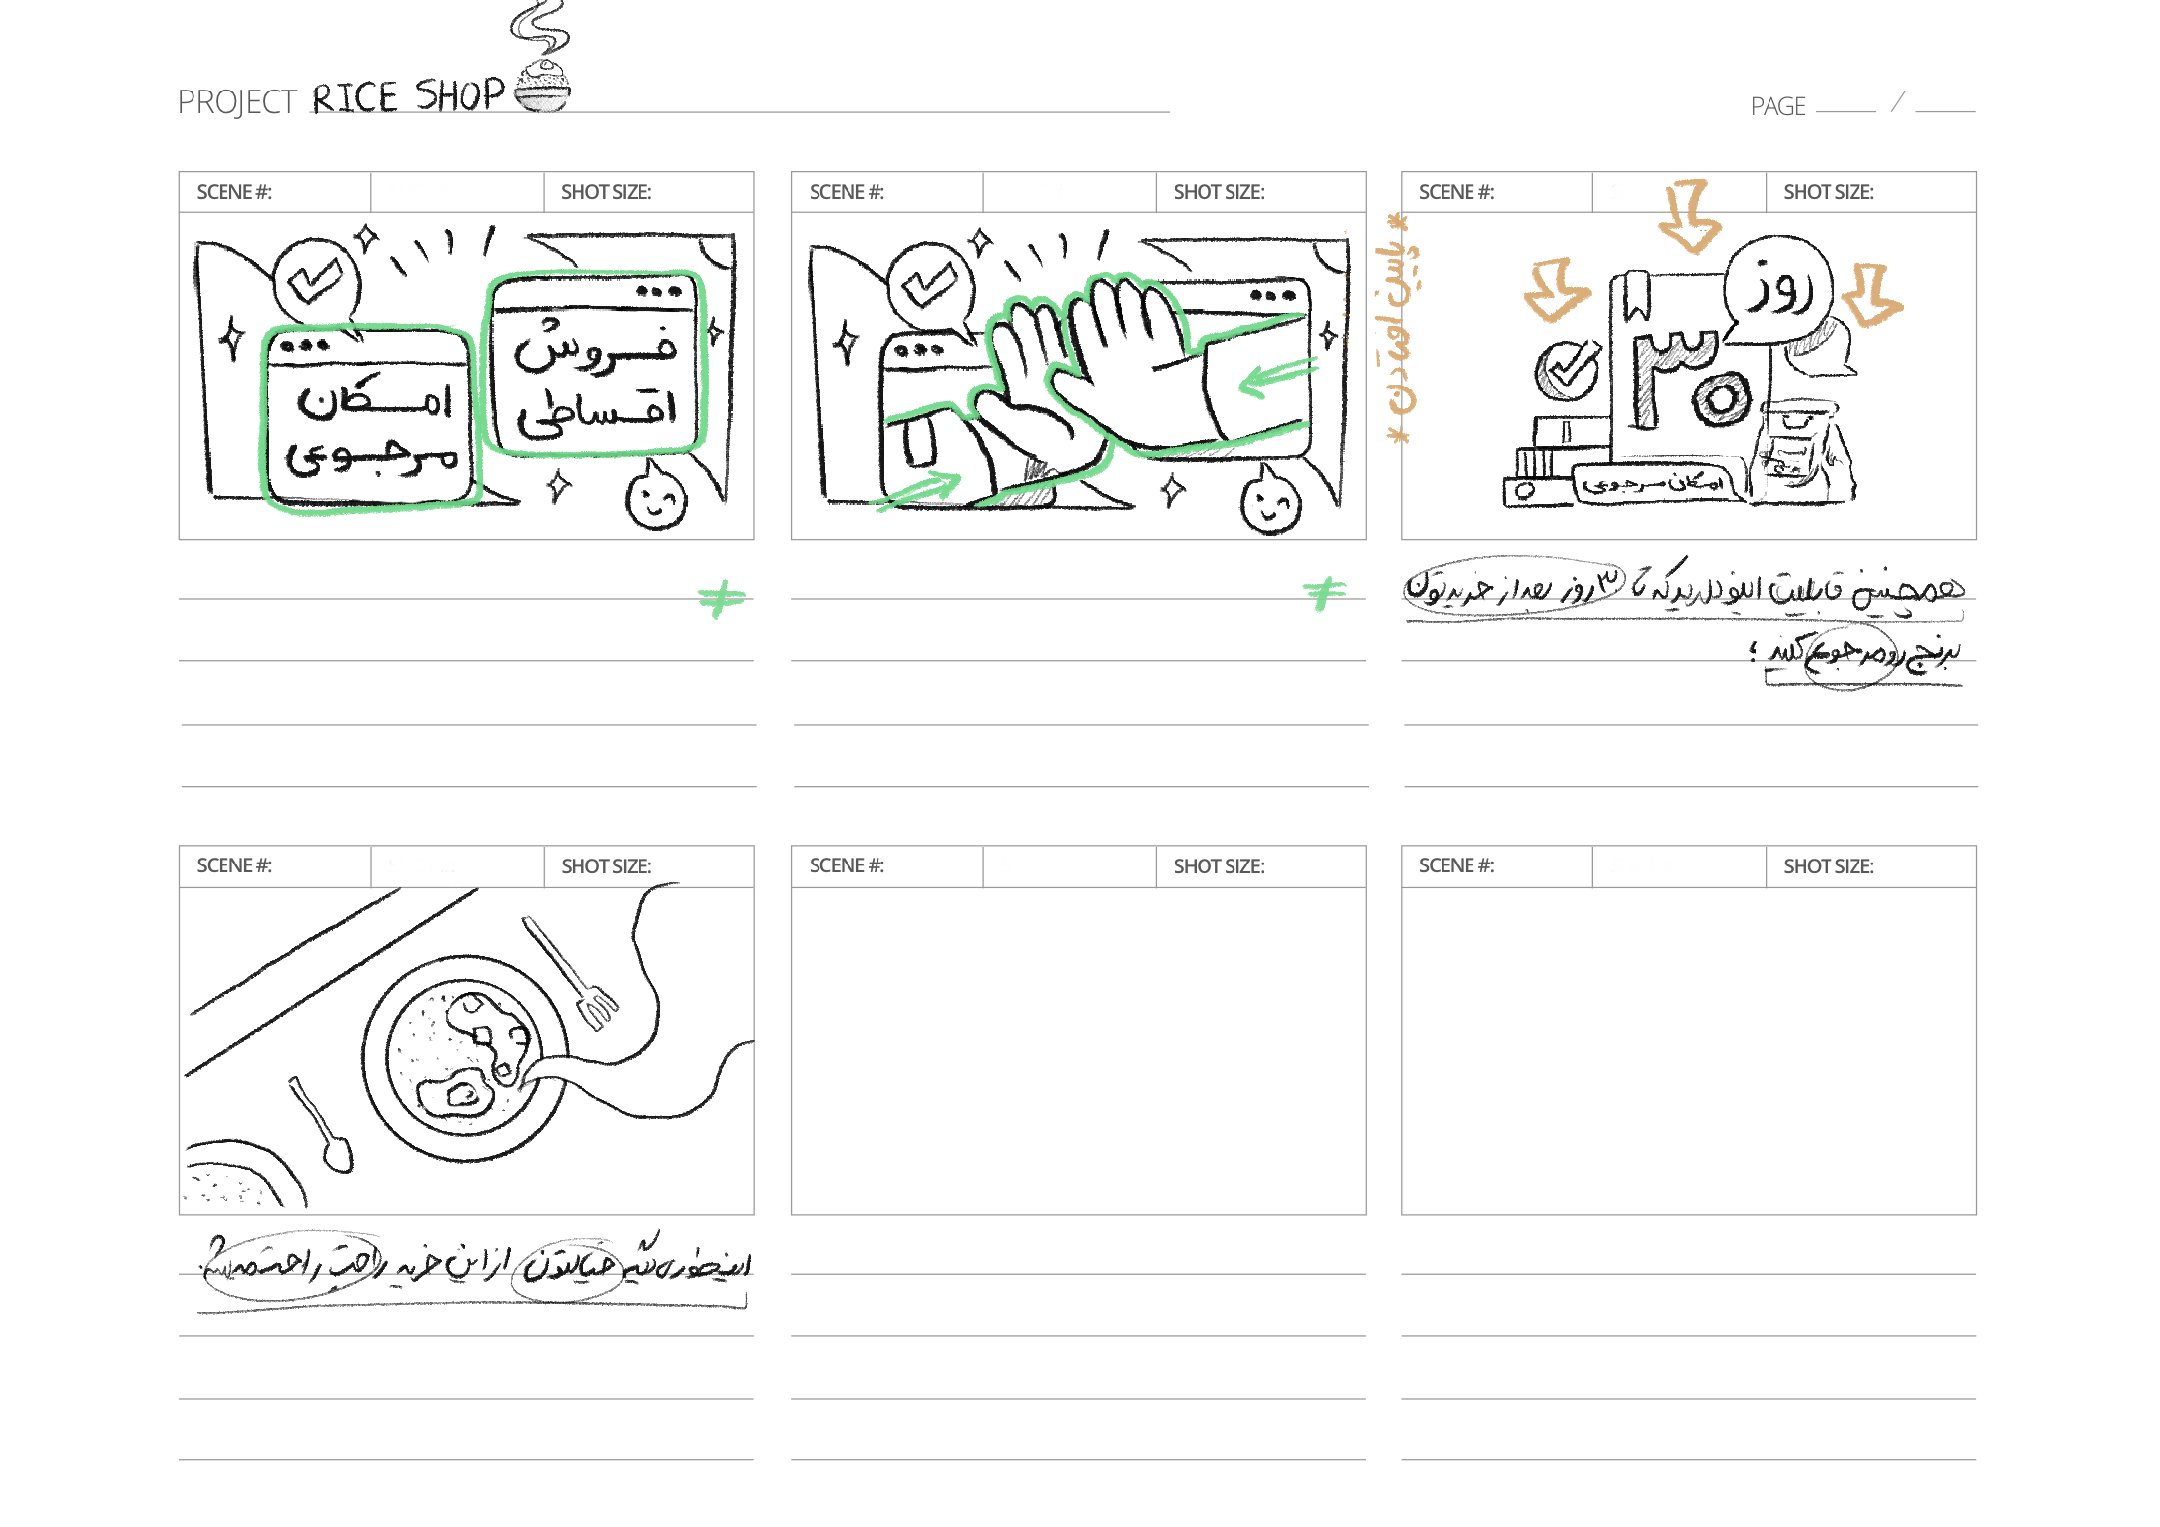 PROJECT RICE SHOP
PAGE /
SCENE #: SHOT SIZE:
امکان
مرجوعی
فروش
اقساطی
SCENE #: SHOT SIZE:
SCENE #: SHOT SIZE:
* پایین افتادن *
روز
۳۰
امکان مرجوعی
همچنین قابلیت اینو دارید که تا ۳۰ روز بعد از خریدتون
برنج رو مرجوع کنید؛
SCENE #: SHOT SIZE:
اینطوری نه خیالتون از این خرید راحت راحت میشه؟
SCENE #: SHOT SIZE:
SCENE #: SHOT SIZE: